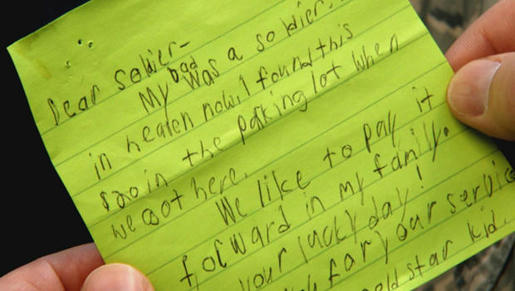 Dear soldier-
My dad was a soldier.
in heaven now. I found this
$20 in the paking lot when
we got here.
We like to pay it
forward in my family.
your lucky day!
for your servic
star kid.